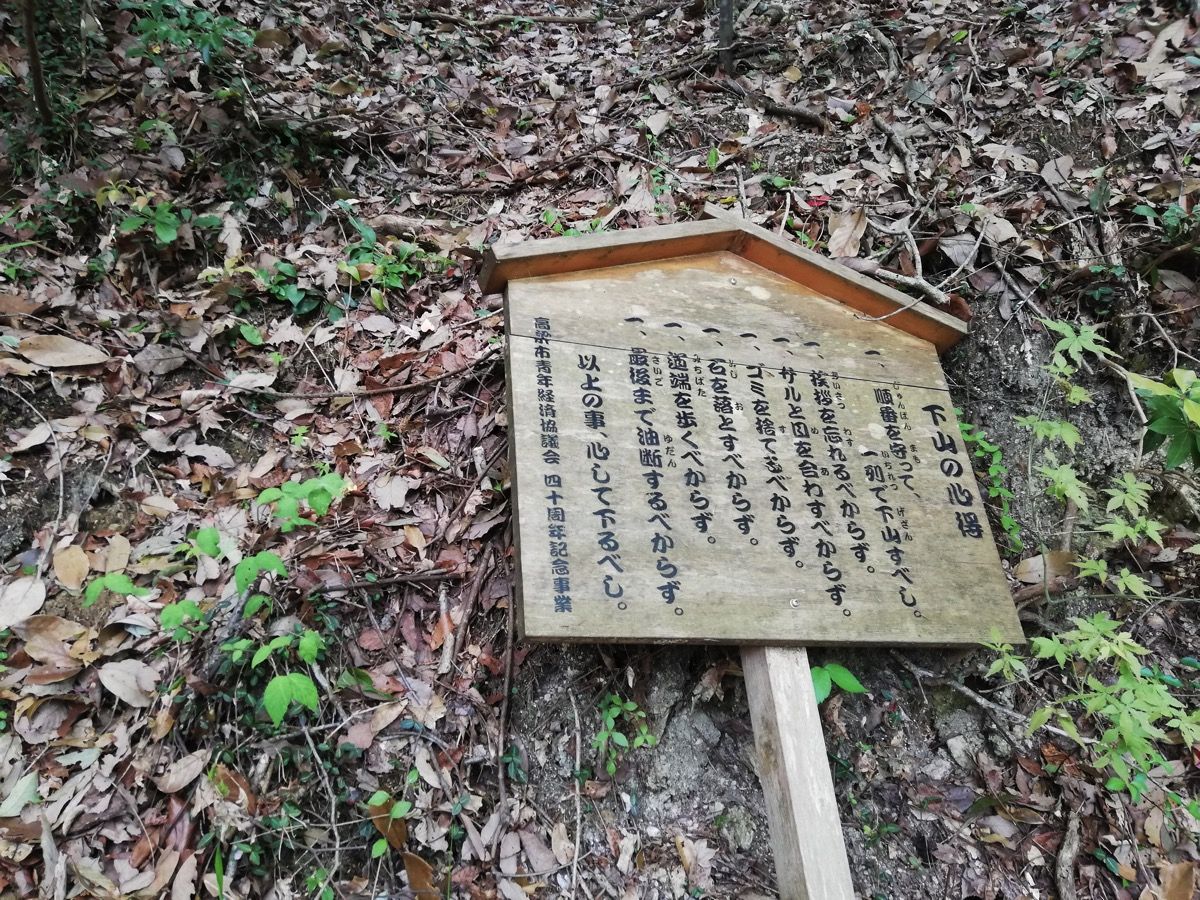 下山の心得
一、順番を守って、
一列で下山すべし。
一、挨拶を忘れるべからず。
一、サルと目を合わすべからず。
一、ゴミを捨てるべからず。
一、石を落とすべからず。
一、道端を歩くべからず。
一、最後まで油断するべからず。
以上の事、心して下るべし。
高梁市青年経済協議会 四十周年記念事業